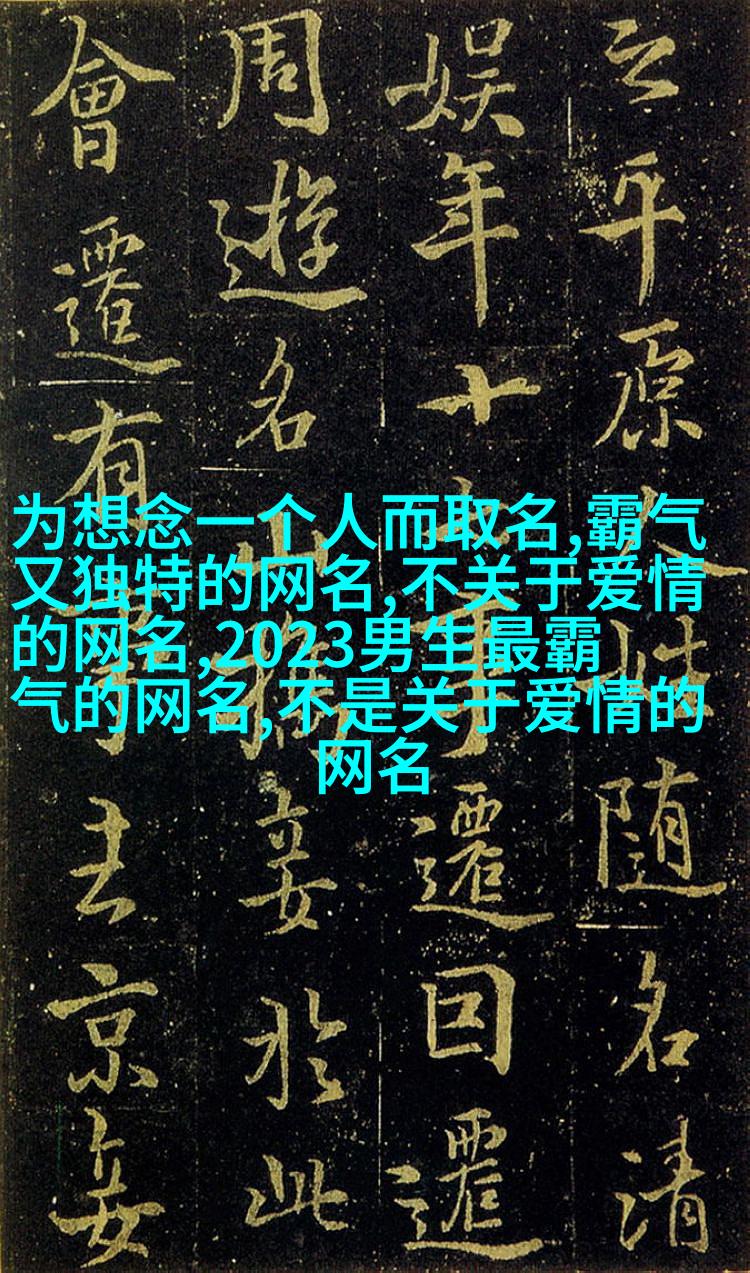 之平原人姓随名清
娱年十遷回遷
周遊名山妾於此
會遷有事去京妾
为想念一个人而取名,霸气
又独特的网名,不关于爱情
的网名,2023男生最霸
气的网名,不是关于爱情的
网名